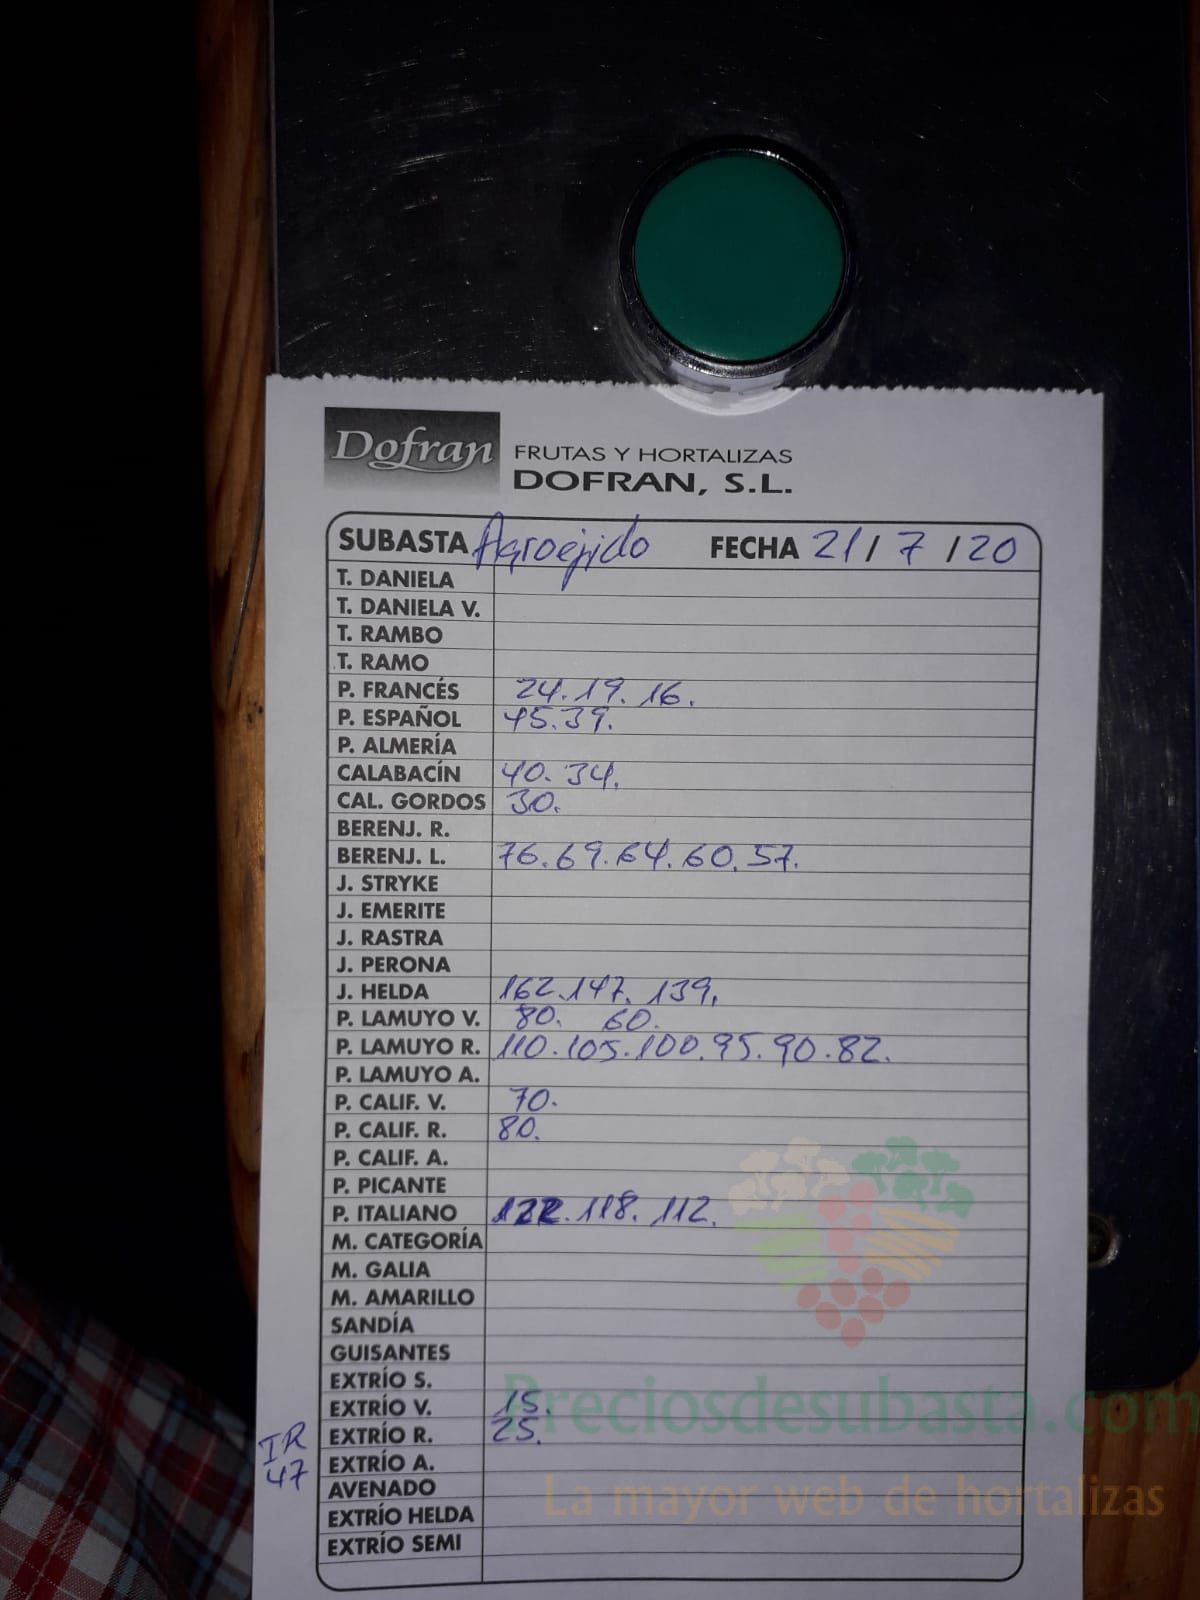 Dofran
FRUTAS Y HORTALIZAS
DOFRAN, S.L.
SUBASTA Agroejido FECHA 21/7/20
T. DANIELA
T. DANIELA V.
T. RAMBO
T. RAMO
P. FRANCÉS 24. 19. 16.
P. ESPAÑOL 45. 39.
P. ALMERÍA
CALABACÍN 40. 34.
CAL. GORDOS 30.
BERENJ. R.
BERENJ. L. 76. 69. 64. 60. 57.
J. STRYKE
J. EMERITE
J. RASTRA
J. PERONA
J. HELDA 162. 147. 139.
P. LAMUYO V. 80. 60.
P. LAMUYO R. 110. 105. 100. 95. 90. 82.
P. LAMUYO A.
P. CALIF. V. 70.
P. CALIF. R. 80.
P. CALIF. A.
P. PICANTE
P. ITALIANO 122. 118. 112.
M. CATEGORÍA
M. GALIA
M. AMARILLO
SANDÍA
GUISANTES
EXTRÍO S.
EXTRÍO V. 15.
EXTRÍO R. 25.
EXTRÍO A.
AVENADO
EXTRÍO HELDA
EXTRÍO SEMI
IR
47
Preciosdesubasta.com
La mayor web de hortalizas